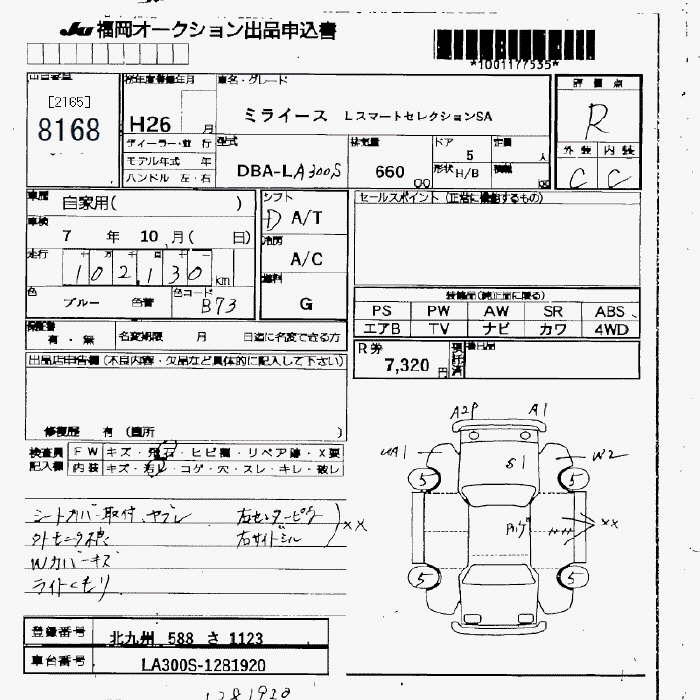 JU 福岡オークション出品申込書
*1001177535*
出品番号
[2165]
8168
初年度登録年月
H26 月
車名・グレード
ミライース LスマートセレクションSA
評価点
R
外装 内装
C C
ディーラー・並行
モデル年式 年
ハンドル 左・右
型式
DBA-LA300S
排気量
660 00
ドア
5
形状 H/B
定員
人
積載
車歴
自家用( )
車検
7 年 10 月( 日)
走行
102130 km
色
ブルー 色替
色コード
B73
シフト
D A/T
冷房
A/C
燃料
G
セールスポイント(正常に機能するもの)
装備品(純正品に限る)
PS PW AW SR ABS
エアB TV ナビ カワ 4WD
保証書
有・無
名変期限 月 日迄に名変できる方
R券
7,320 円
預託済
出品店申告欄(不良内容・欠品など具体的に記入して下さい)
修復歴 有(箇所 )
検査員
記入欄
FW キズ・飛石・ヒビ割・リペア跡・X要
内装 キズ・汚れ・コゲ・穴・スレ・キレ・破レ
A2P A1
A1 W2
S1
5 5
XX
5 5
シートカバー取付、ヤブレ
左センターピラー
右サイドシル
XX
Wカバーキズ
ライトくもり
登録番号 北九州 588 さ 1123
車台番号 LA300S-1281920
1281920